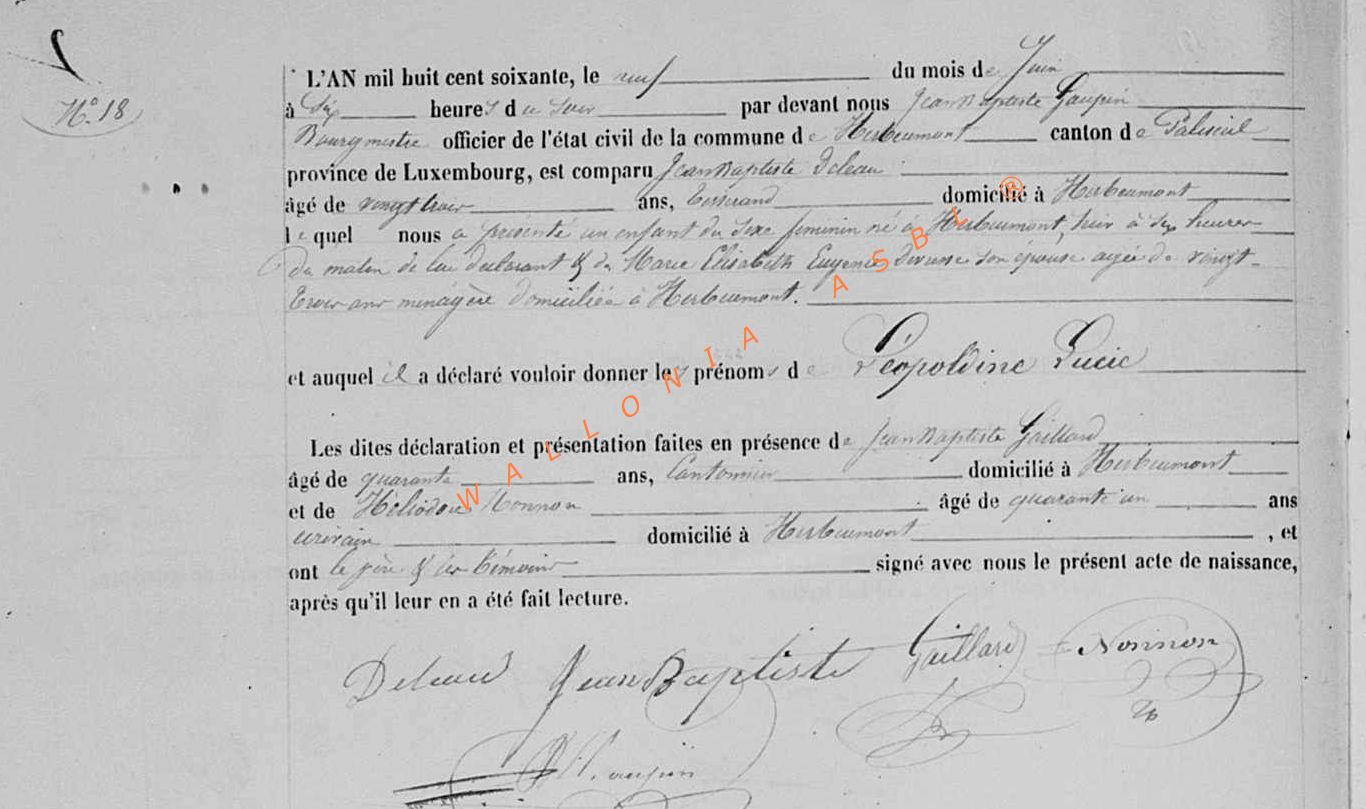 N° 18
L'AN mil huit cent soixante, le neuf du mois de Juin
à Six heures du soir par devant nous Jean Baptiste Gaupin
Bourgmestre officier de l'état civil de la commune de Herbeumont canton de Paliseul
province de Luxembourg, est comparu Jean Baptiste Deleau
âgé de vingt trois ans, tisserand domicilié à Herbeumont
lequel nous a présenté un enfant du sexe feminin né à Herbeumont, hier à heures
du matin de lui déclarant & de Marie Elisabeth Eugenie son épouse agée de vingt
trois ans menagère domiciliée à Herbeumont.
et auquel il a déclaré vouloir donner les prénoms de Léopoldine Lucie
Les dites déclaration et présentation faites en présence de Jean Baptiste Gaillard
âgé de quarante ans, Cantonnier domicilié à Herbeumont
et de Héliodore Nonnon âgé de quarante un ans
écrivain domicilié à Herbeumont, et
ont le père & les témoins signé avec nous le présent acte de naissance,
après qu'il leur en a été fait lecture.
Deleau Jean Baptiste Gaillard Nonnon
WALLONIA ASBL ®